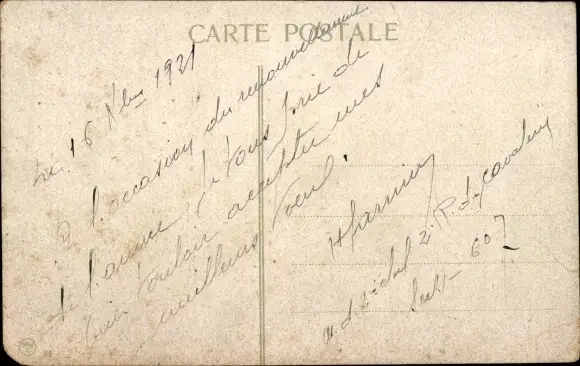 CARTE POSTALE
Le 16 Nbre 1921
à l'occasion du renouvellement
de l'année, je vous prie de
bien vouloir accepter mes
meilleurs voeux.
2e R. d. Cavalerie
Sect 607